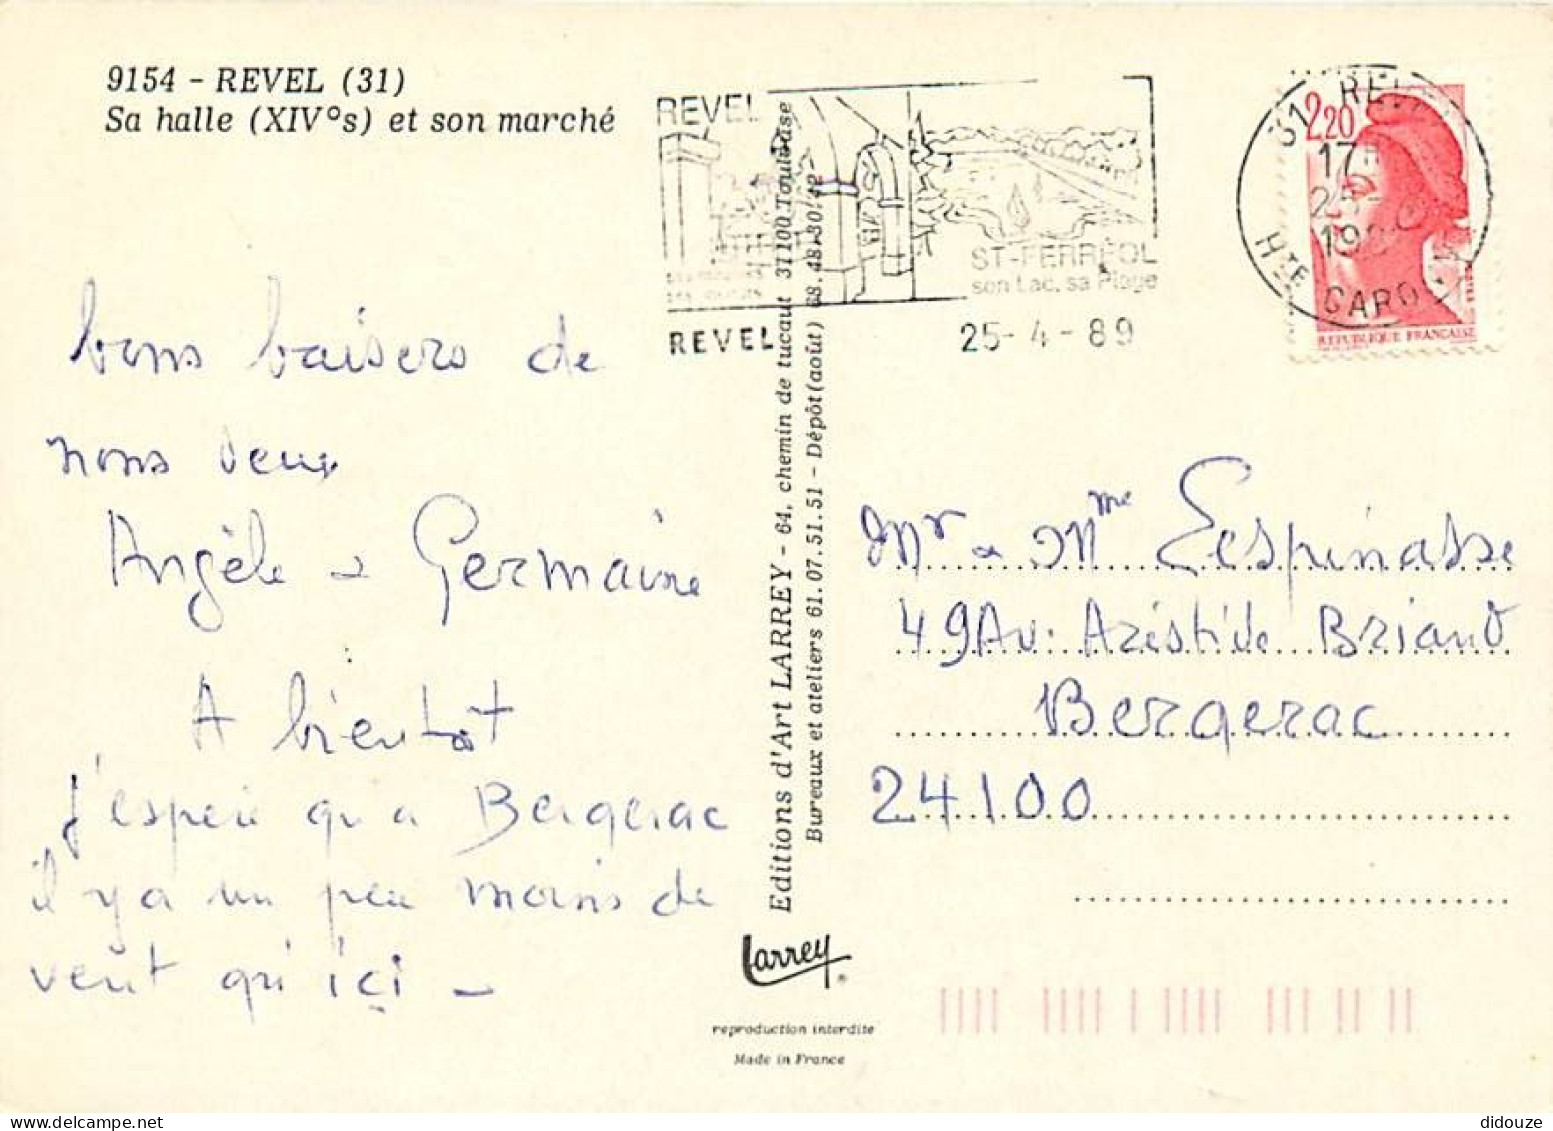 9154 - REVEL (31)
Sa halle (XIV°s) et son marché
REVEL
ST-FERRÉOL
son Lac, sa Plage
REVEL
25-4-89
31 REVEL
17
19
Hte GARONNE
2,20
REPUBLIQUE FRANÇAISE
bons baisers de
nous deux
Angèle & Germaine
A bientôt
J'espère qu'a Bergerac
il y a un peu moins de
vent qu'içi -
Editions d'Art LARREY - 64, chemin de tucaut 31100 Toulouse
Bureaux et ateliers 61.07.51.51 - Dépôt (août) 68.48.30/42
Mr & Mme Lespinasse
49 Av. Aristide Briand
Bergerac
24100
Larrey
reproduction interdite
Made in France
didouze